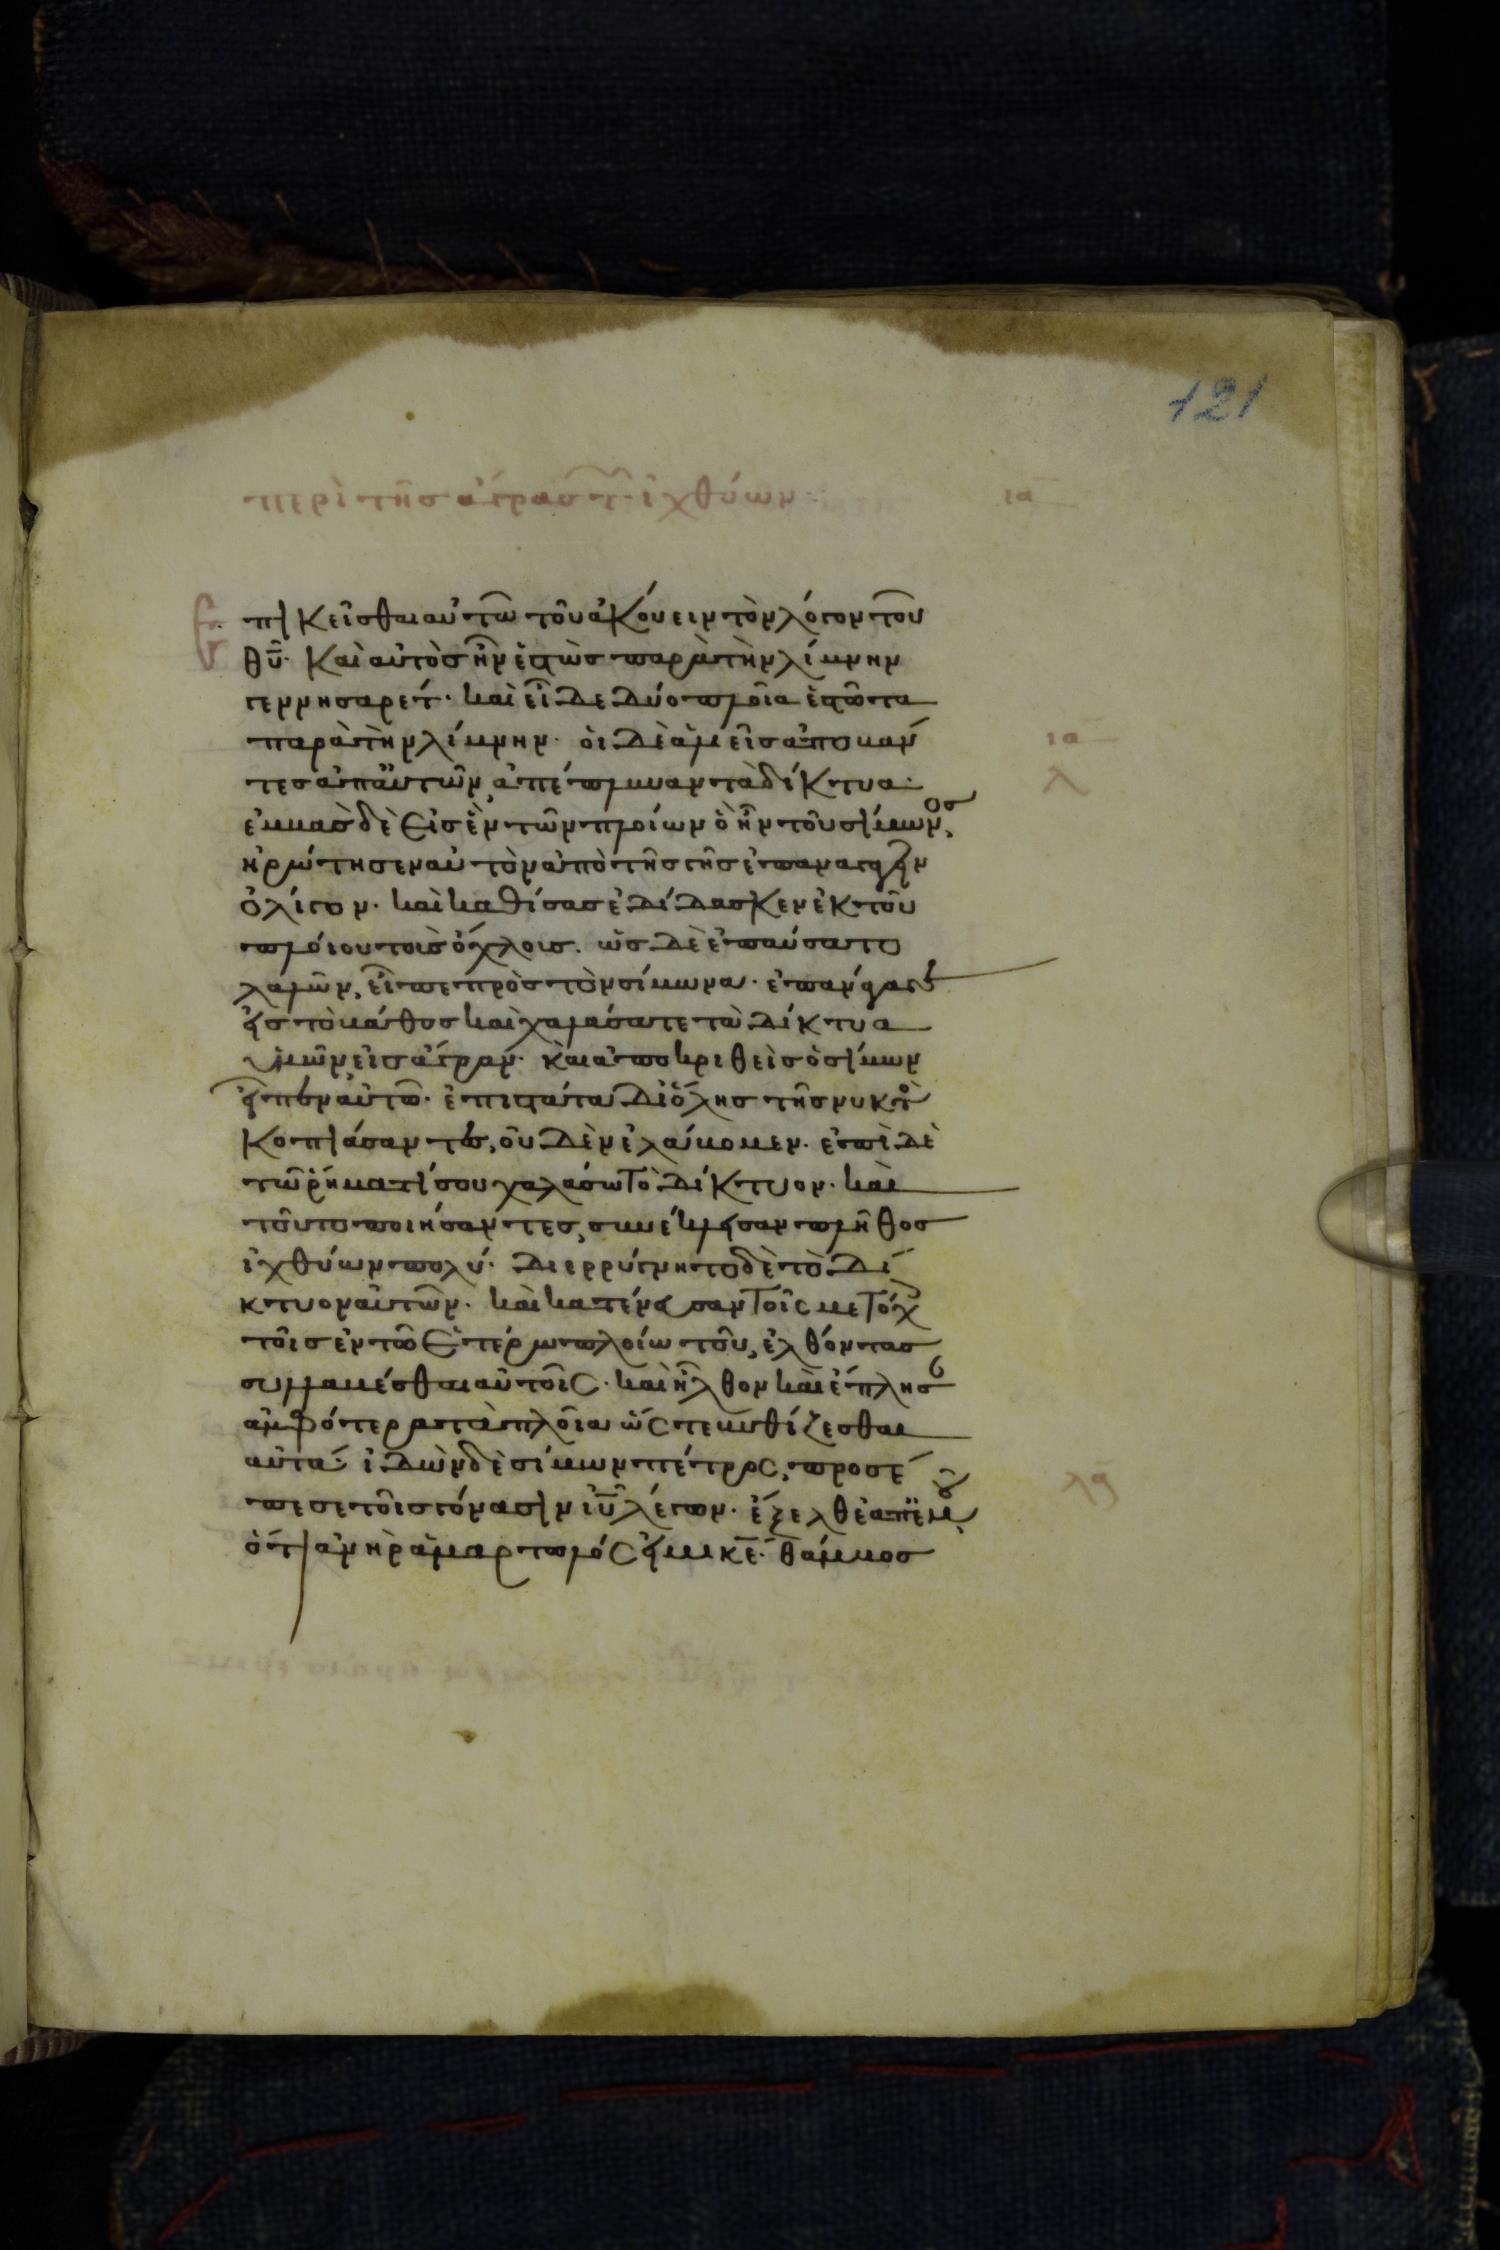 121
περὶ τῆς ἄγρας τ ἰχθύων ια
πικεῖσθαι αὐτῶ τοῦ ἀκούειν τὸν λόγον τοῦ
θυ· καὶ αὐτὸς ἦν ἑστὼς παρὰ τὴν λίμνην
γεννησαρέτ· καὶ εἶδε δύο πλοῖα ἑστῶτα
παρὰ τὴν λίμνην· οἱ δὲ ἁλιεῖς ἀποβάν
τες ἀπ αὐτῶν, ἀπέπλυναν τὰ δίκτυα·
ἐμβὰς δὲ εἰς ἓν τῶν πλοίων ὃ ἦν τοῦ σίμωνος,
ἠρώτησεν αὐτὸν ἀπὸ τῆς γῆς ἐπαναγαγεῖν
ὀλίγον· καὶ καθίσας ἐδίδασκεν ἐκ τοῦ
πλοίου τοὺς ὄχλους. ὡς δὲ ἐπαύσατο
λαλῶν, εἶπε πρὸς τὸν σίμωνα· ἐπανάγαγε
εἰς τὸ βάθος καὶ χαλάσατε τὰ δίκτυα
ὑμῶν εἰς ἄγραν· καὶ ἀποκριθεὶς ὁ σίμων
εἶπεν αὐτῶ· ἐπιστάτα δι ὅλης τῆς νυκτὸ
κοπιάσαντες, οὐδὲν ἐλάβομεν· ἐπὶ δὲ
τῶ ῥήματί σου χαλάσω τὸ δίκτυον· καὶ
τοῦτο ποιήσαντες, συνέκλεισαν πλῆθος
ἰχθύων πολύ· διερρύγνητο δὲ τὸ δί
κτυον αὐτῶν· καὶ κατένευσαν τοῖς μετόχ
τοῖς ἐν τῶ ἑτέρω πλοίω τοῦ, ἐλθόντας
συλλαβέσθαι αὐτοῖς· καὶ ἦλθον καὶ ἔπλησ
ἀμφότερα τὰ πλοῖα ὥστε βυθίζεσθαι
αὐτά· ἰδὼν δὲ σίμων πέτρος, προσέ
πεσε τοῖς γόνασιν ιυ λέγων· ἔξελθε ἀπ ἐμοῦ,
ὅτι ἀνὴρ ἁμαρτωλός εἰμι κε· θάμβος